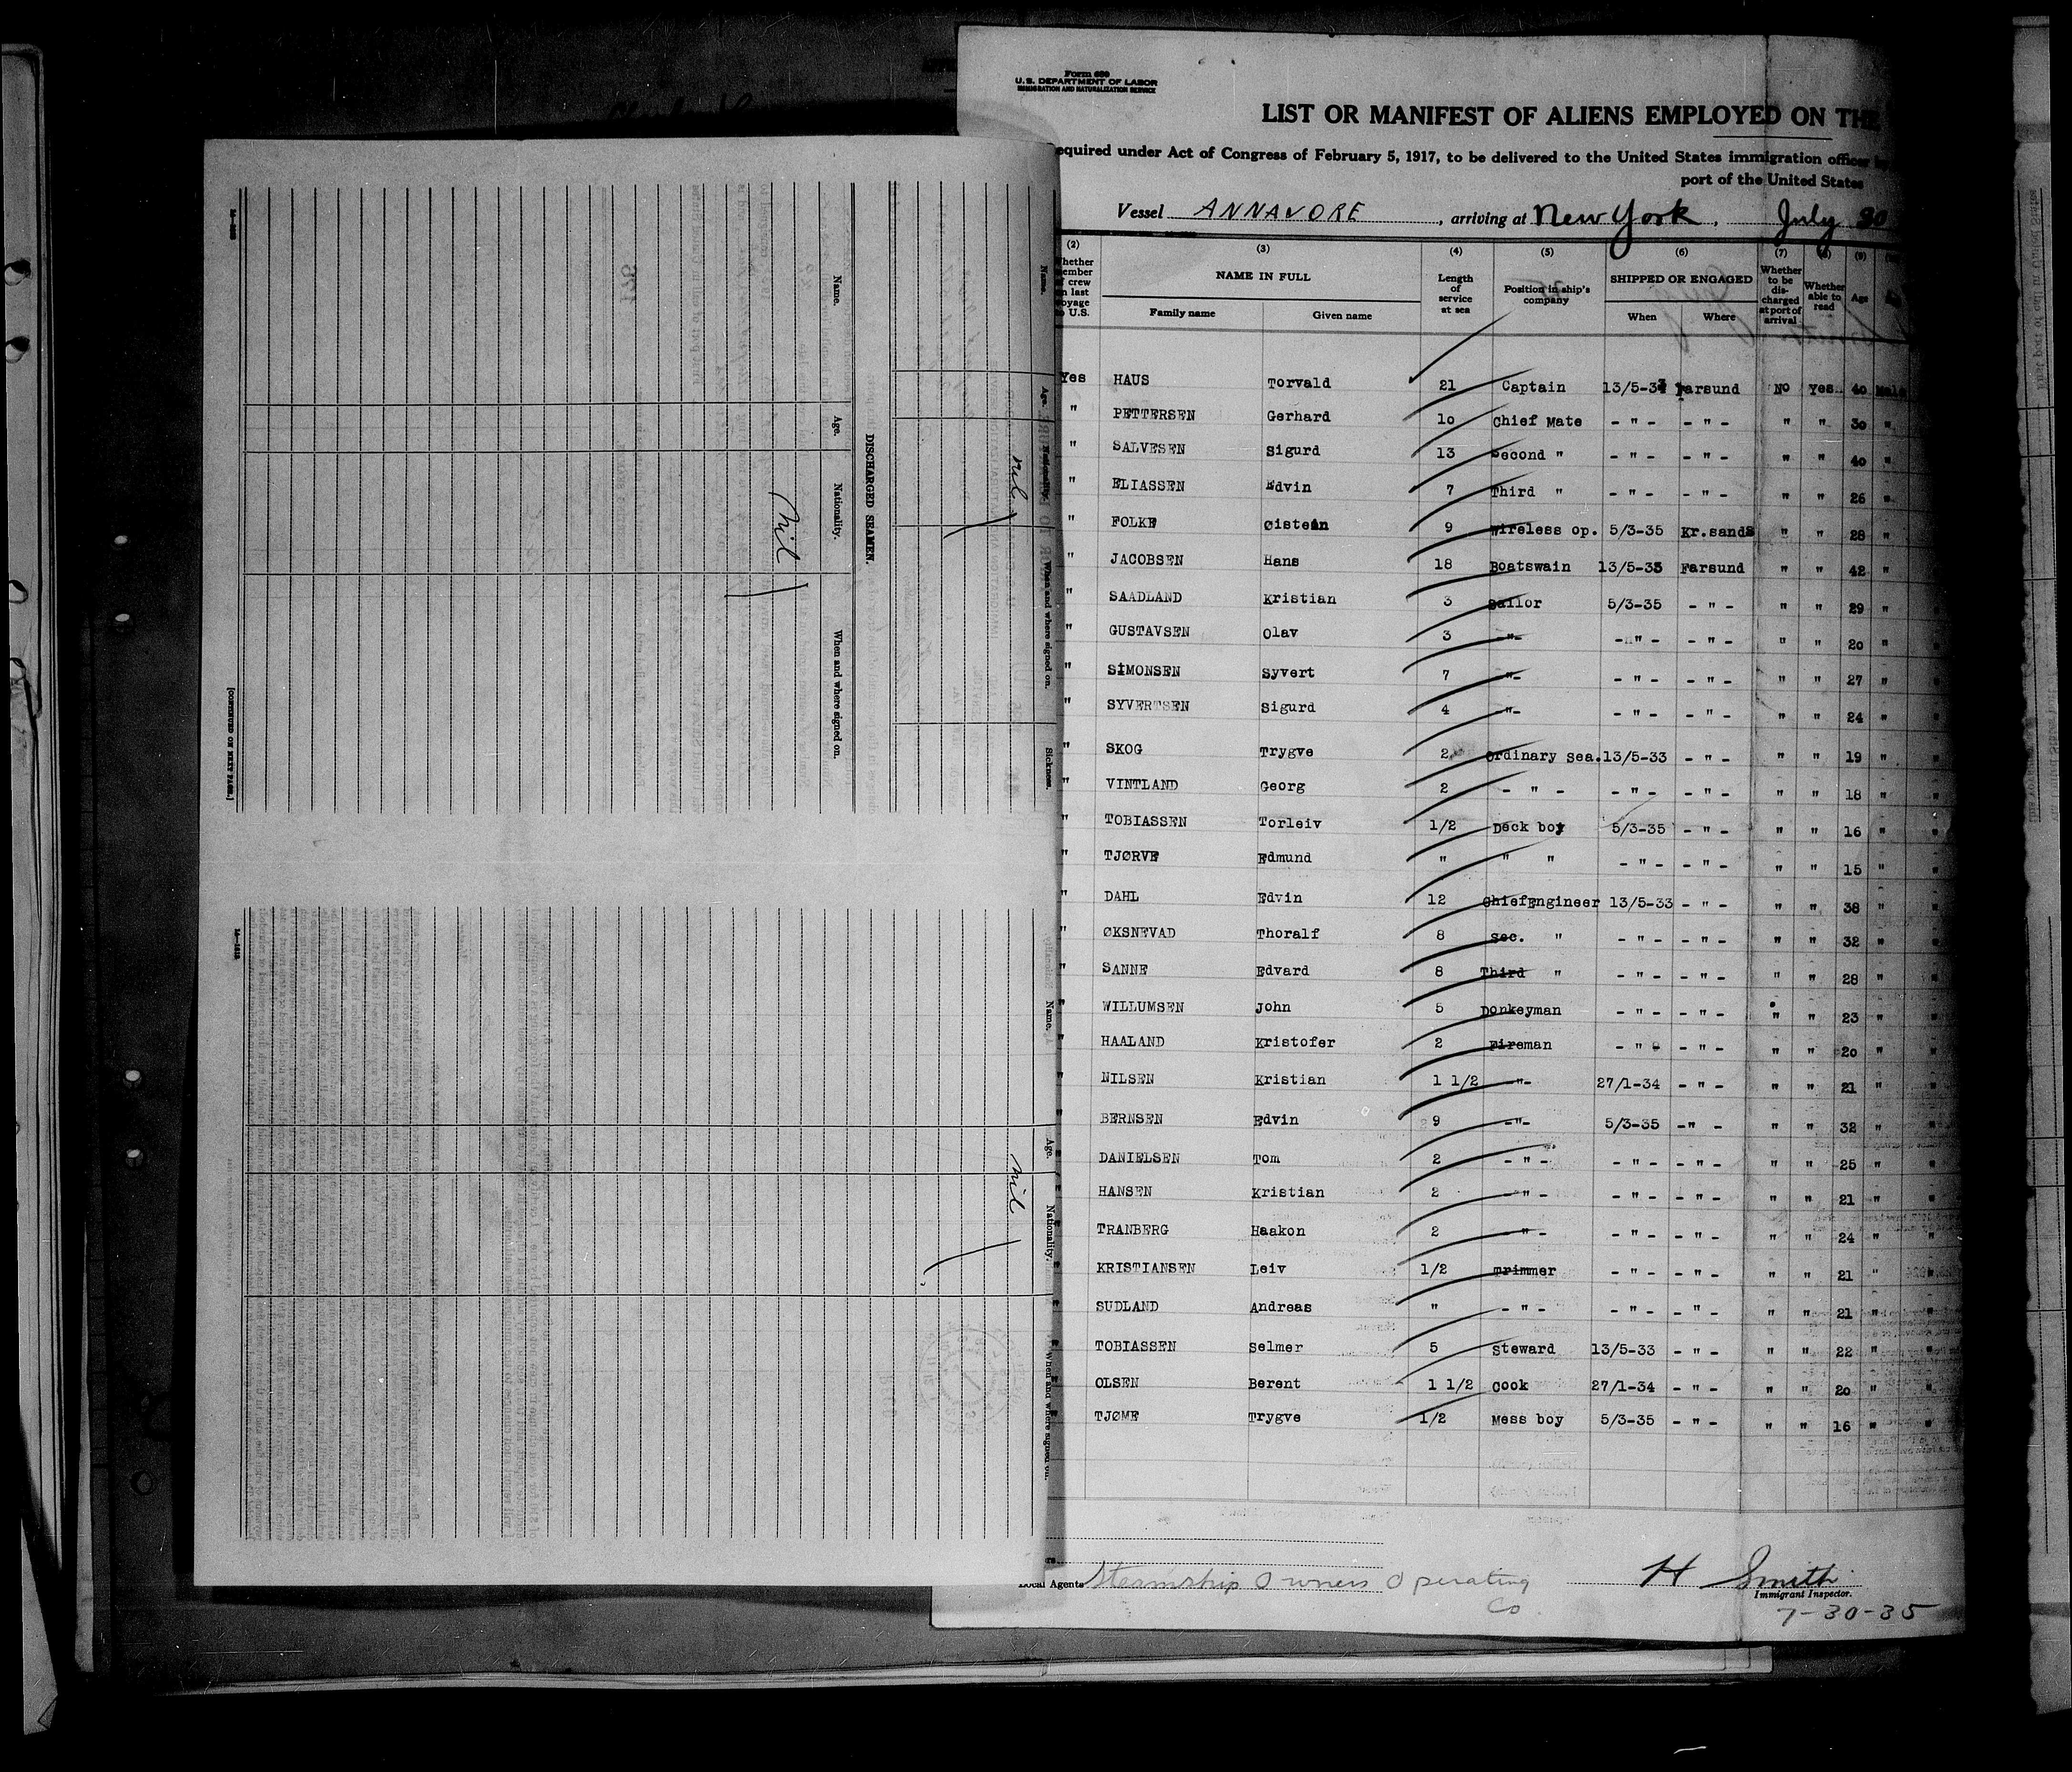 Form 680
U. S. DEPARTMENT OF LABOR
IMMIGRATION AND NATURALIZATION SERVICE
LIST OR MANIFEST OF ALIENS EMPLOYED ON THE
equired under Act of Congress of February 5, 1917, to be delivered to the United States immigration officer
port of the United States
Vessel ANNAVORE, arriving at New York, July 30
(2) (3) (4) (5) (6) (7) (8) (9)
Whether member of crew on last voyage to U.S. NAME IN FULL Length of service at sea Position in ship's company SHIPPED OR ENGAGED Whether to be discharged at port of arrival Whether able to read Age
Family name Given name When Where
Yes HAUS Torvald 21 Captain 13/5-33 Farsund No Yes 40 Male
" PETTERSEN Gerhard 10 Chief Mate - " - - " - " " 30 "
" SALVESEN Sigurd 13 Second " - " - - " - " " 40 "
" ELIASSEN Edvin 7 Third " - " - - " - " " 26 "
" FOLKE Øistein 9 Wireless op. 5/3-35 Kr.sands " " 28 "
" JACOBSEN Hans 18 Boatswain 13/5-33 Farsund " " 42 "
" SAADLAND Kristian 3 Sailor 5/3-35 - " - " " 29 "
" GUSTAVSEN Olav 3 -"- - " - - " - " " 20 "
" SIMONSEN Syvert 7 -"- - " - - " - " " 27 "
" SYVERTSEN Sigurd 4 -"- - " - - " - " " 24 "
" SKOG Trygve 2 Ordinary sea. 13/5-33 - " - " " 19 "
" VINTLAND Georg 2 - " - - " - - " - " " 18 "
" TOBIASSEN Torleiv 1/2 Deck boy 5/3-35 - " - " " 16 "
" TJØRVE Edmund " " " - " - - " - " " 15 "
" DAHL Edvin 12 ChiefEngineer 13/5-33 - " - " " 38 "
" ØKSNEVAD Thoralf 8 Sec. " - " - - " - " " 32 "
" SANNE Edvard 8 Third " - " - - " - " " 28 "
" WILLUMSEN John 5 Donkeyman - " - - " - " " 23 "
" HAALAND Kristofer 2 Fireman - " - - " - " " 20 "
" NILSEN Kristian 1 1/2 -"- 27/1-34 - " - " " 21 "
" BERNSEN Edvin 9 -"- 5/3-35 -" - " " 32 "
" DANIELSEN Tom 2 - " - - " - - " - " " 25 "
" HANSEN Kristian 2 - " - - " - - " - " " 21 "
" TRANBERG Haakon 2 - " - - " - - " - " " 24 "
" KRISTIANSEN Leiv 1/2 Trimmer - " - - " - " " 21 "
" SUDLAND Andreas " - " - - " - - " - " " 21 "
" TOBIASSEN Selmer 5 Steward 13/5-33 - " - " " 22 "
" OLSEN Berent 1 1/2 Cook 27/1-34 - " - " " 20 "
TJØME Trygve 1/2 Mess boy 5/3-35 - " - " " 16 "
Local Agents Steamship Owners Operating Co
H Smith
Immigrant Inspector.
7-30-35
Name. Age. Nationality. When and where signed on. Sickness.
nil
DISCHARGED SEAMEN.
Name. Age. Nationality. When and where signed on.
Nil
[CONTINUED ON NEXT PAGE.]
Name. Age. Nationality. When and where signed on.
nil